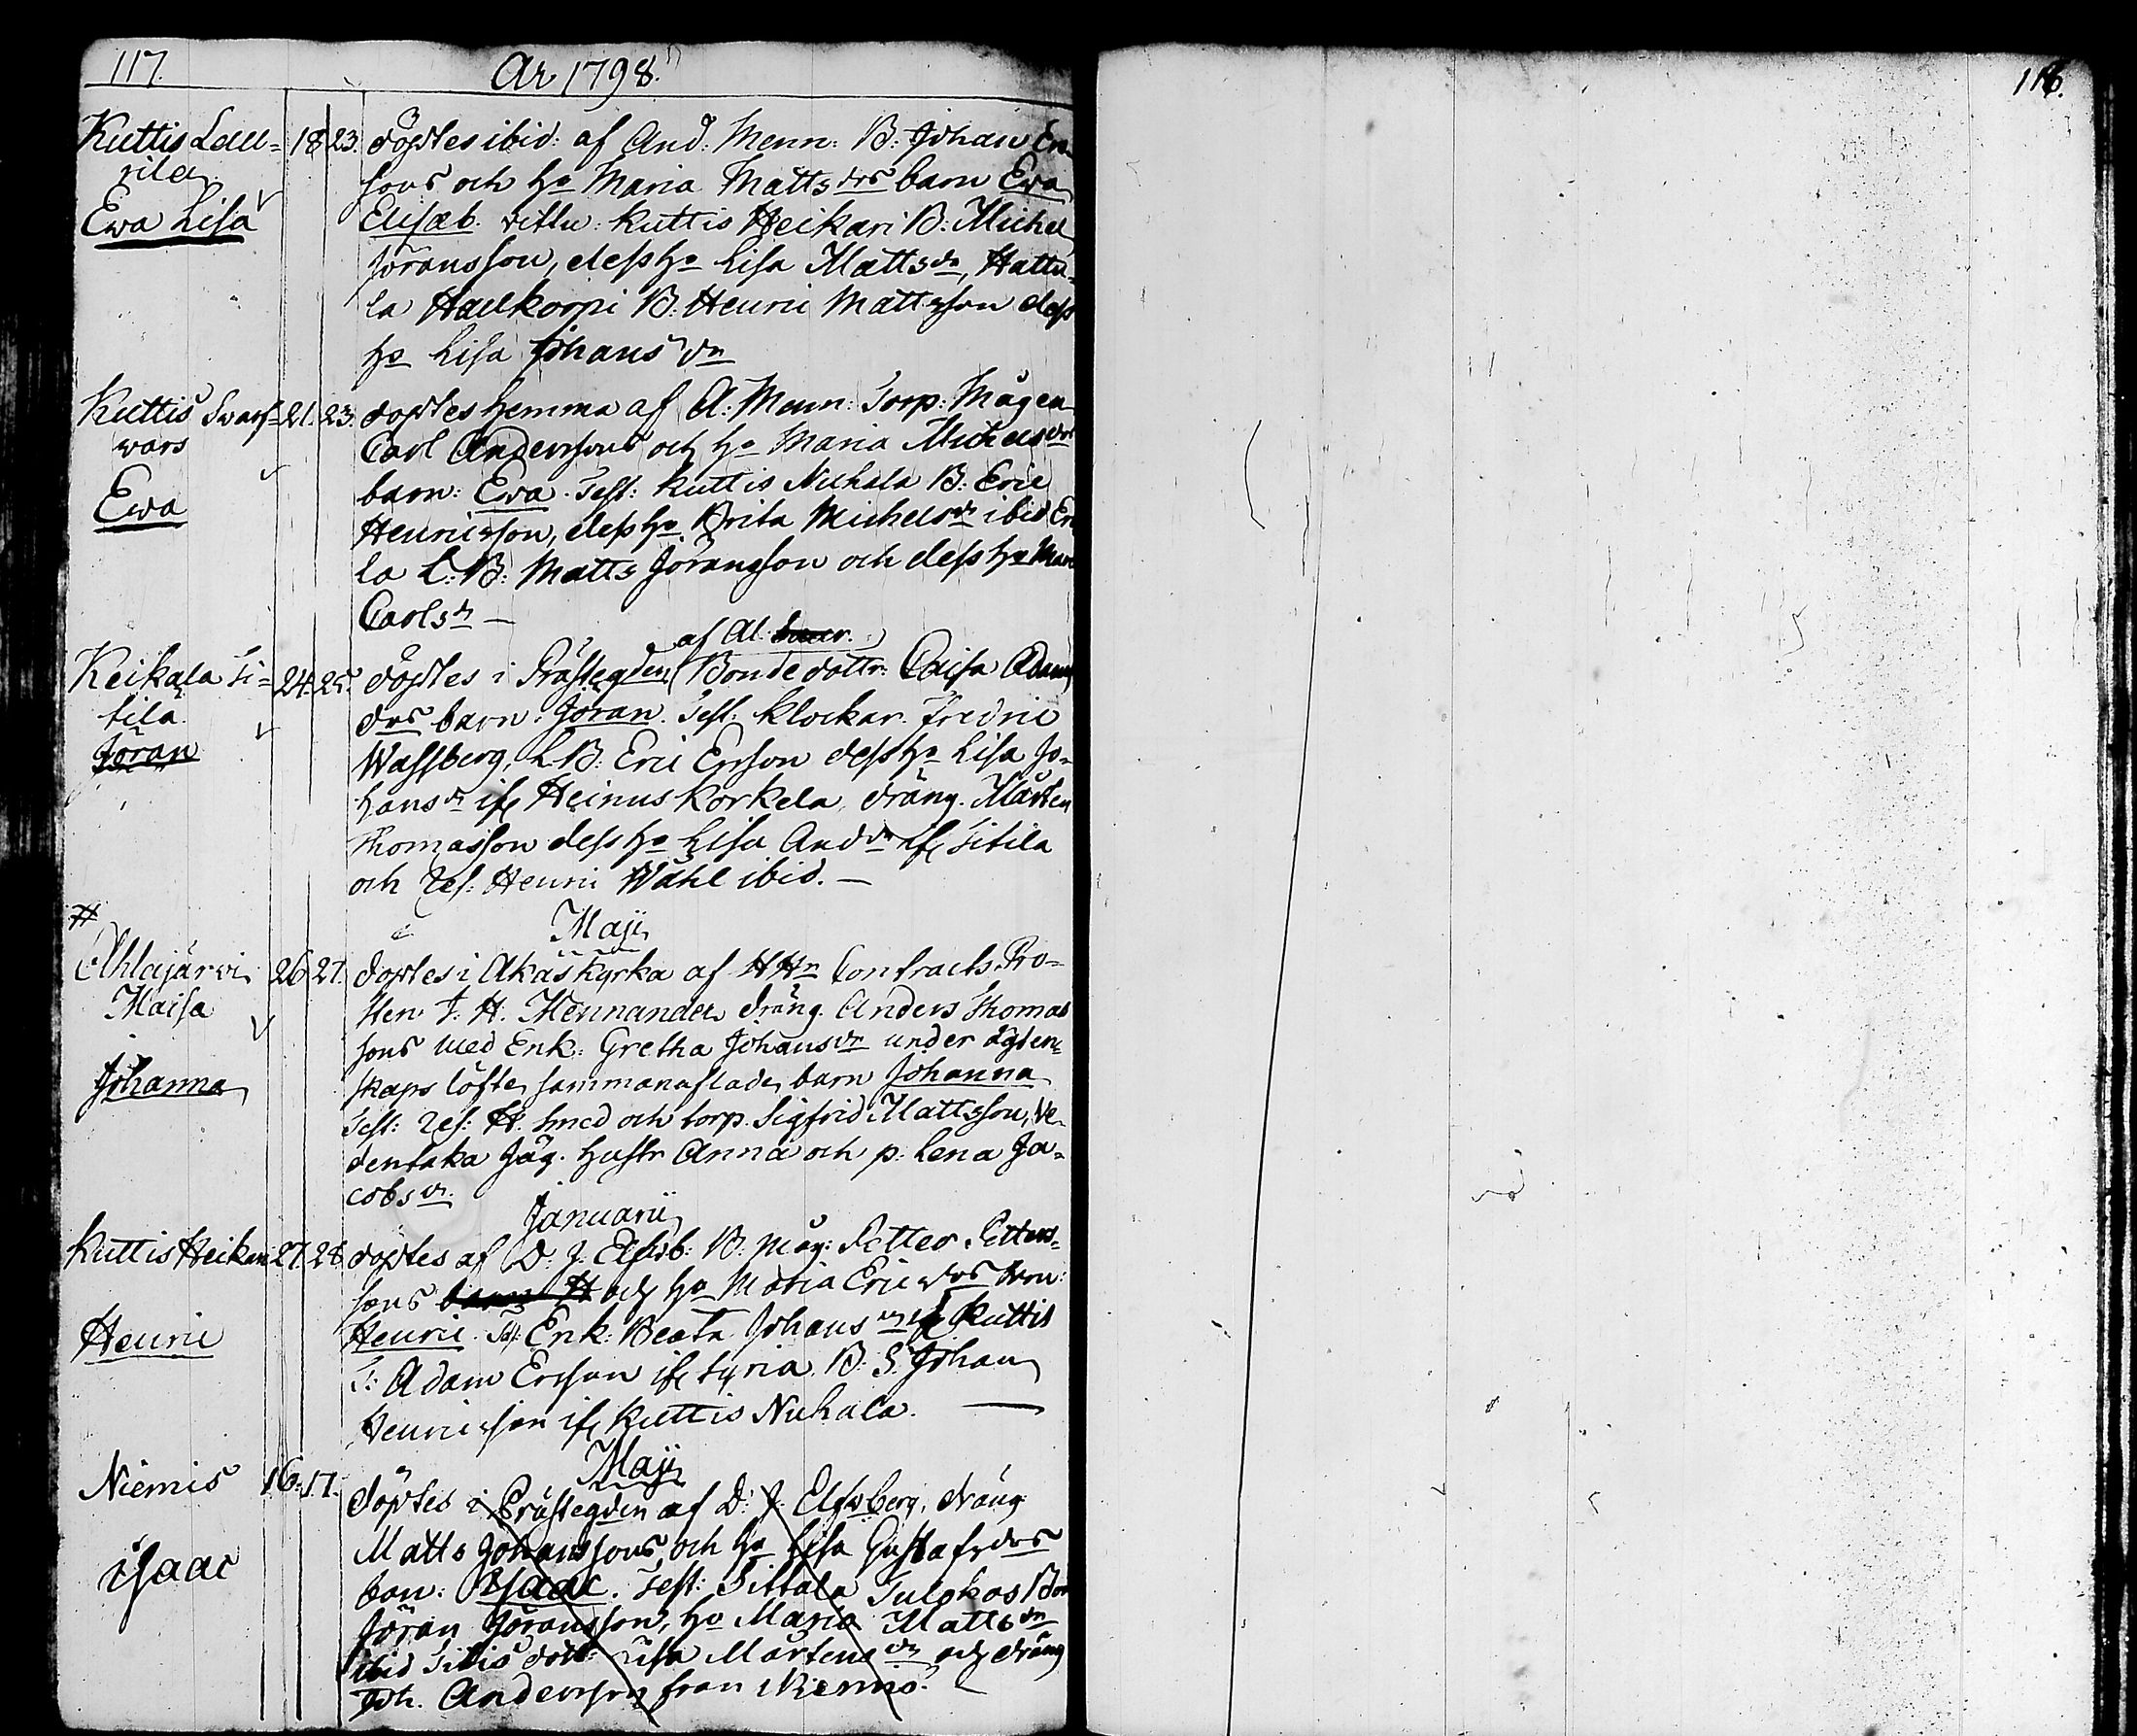 117.
År 1798.
116.
Kuttis Lau=
rila
Ewa Lisa
18 23. döptes ibid: af And. Menn: B: Johan Er
sons och ho Maria Matts drs barn Ewa
Elisab. vittn: Kuttis Heikari B: Michel
Jöransson, dess ho Lisa Matts dr, Hattu=
la Haukorpi B: Henric Mattsson dess
ho Lisa Johans dr
Kuttis Swarf=
wars
Ewa
21. 23. döptes hemma af A: Menn: Torp: Mågen
Carl Anderssons och ho Maria Michels drs
barn: Ewa. Test: Kuttis Nuhala B: Eric
Henricsson, dess ho Brita Michels dr ibid
la L: B: Matts Jöransson och dess ho
Carls dr —
af Al.
Keikala Ti=
tila
Jöran
24. 25. döptes i Prästegden Bondedottr. Caisa Adams
drs barn: Jöran. Test: Klockar. Fredric
Wassberg, L. B: Eric Ersson dess ho Lisa Jo=
hans dr ifr Heinus Korkela, dräng. Mårten
Thomasson dess ho Lisa And dr ifr Titila
och Ref: Henric Wahl ibid. —
Maji
Ahlajärvi
Maisa
Johanna
26 27. döptes i Akäs Kyrka af HHr Contracts Pro=
sten J. H. Mennander, dräng. Anders Thomas
sons med Enk: Gretha Johans dr under ägten=
skaps löfte sammanaflade barn Johanna
Test: Ref: H. smed och torp. Sigfrid Mattsson, Ve=
dentaka Jäg. hustr Anna och p: Lena Ja=
cobs dr.
Januarii
Kuttis Heikari
Henric
27. 28. döptes af D. J. Elfsb: B: Måg: Petter Petters=
sons barn H och ho Maria Erics drs
Henric. Tst: Enk: Beata Johans dr ifr Kuttis
T: Adam Ersson ifr Syria. B: S. Johan
Henricsson ifr Kuttis Nuhala. —
Maji
Niemis
Isaac
16. 17. döptes i Prästegden af D: J: Elfsberg, dräng
Matts Johanssons, och ho Lisa Gustafs drs
ban: Isaac. Test: Sittala Tulokas Bon
Jöran Jöransson, ho Maria Matts dr
ibid Titis dott: Lisa Mårtens dr och dräng
Joh. Andersson från Niemis.